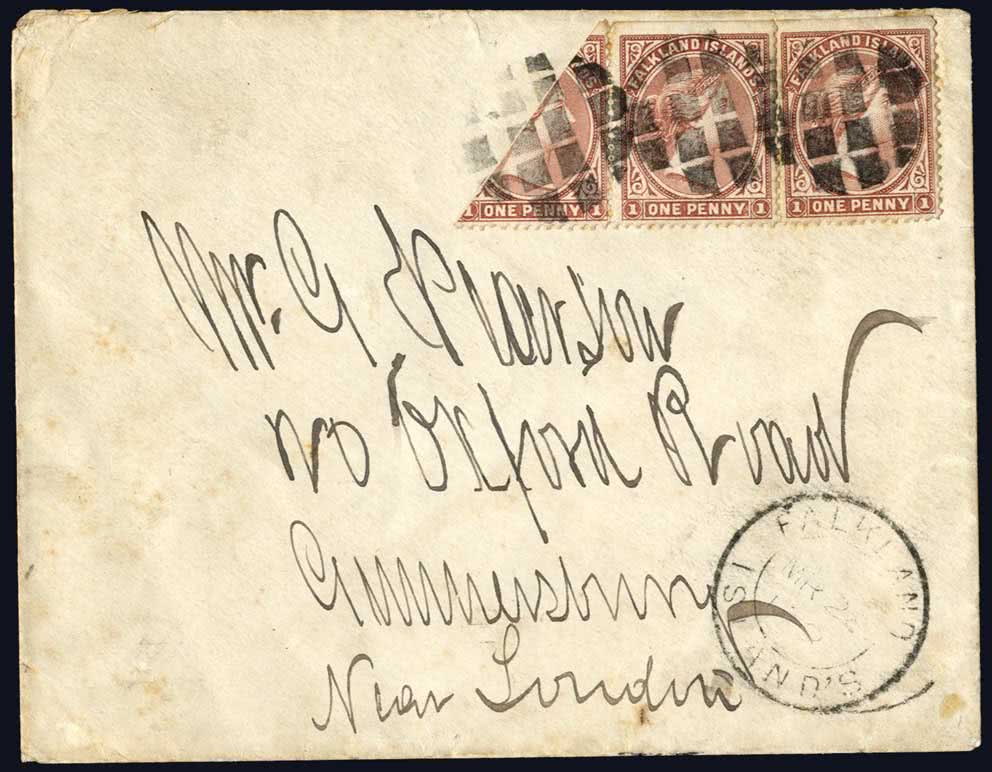 FALKLAND ISLANDS
FALKLAND ISLANDS
1 ONE PENNY 1
1 ONE PENNY 1
1 ONE PENNY 1
Mr. G Pearson
Oxford Road
Gunnersbury
Near London
FALKLAND ISLAND'S
MR 24